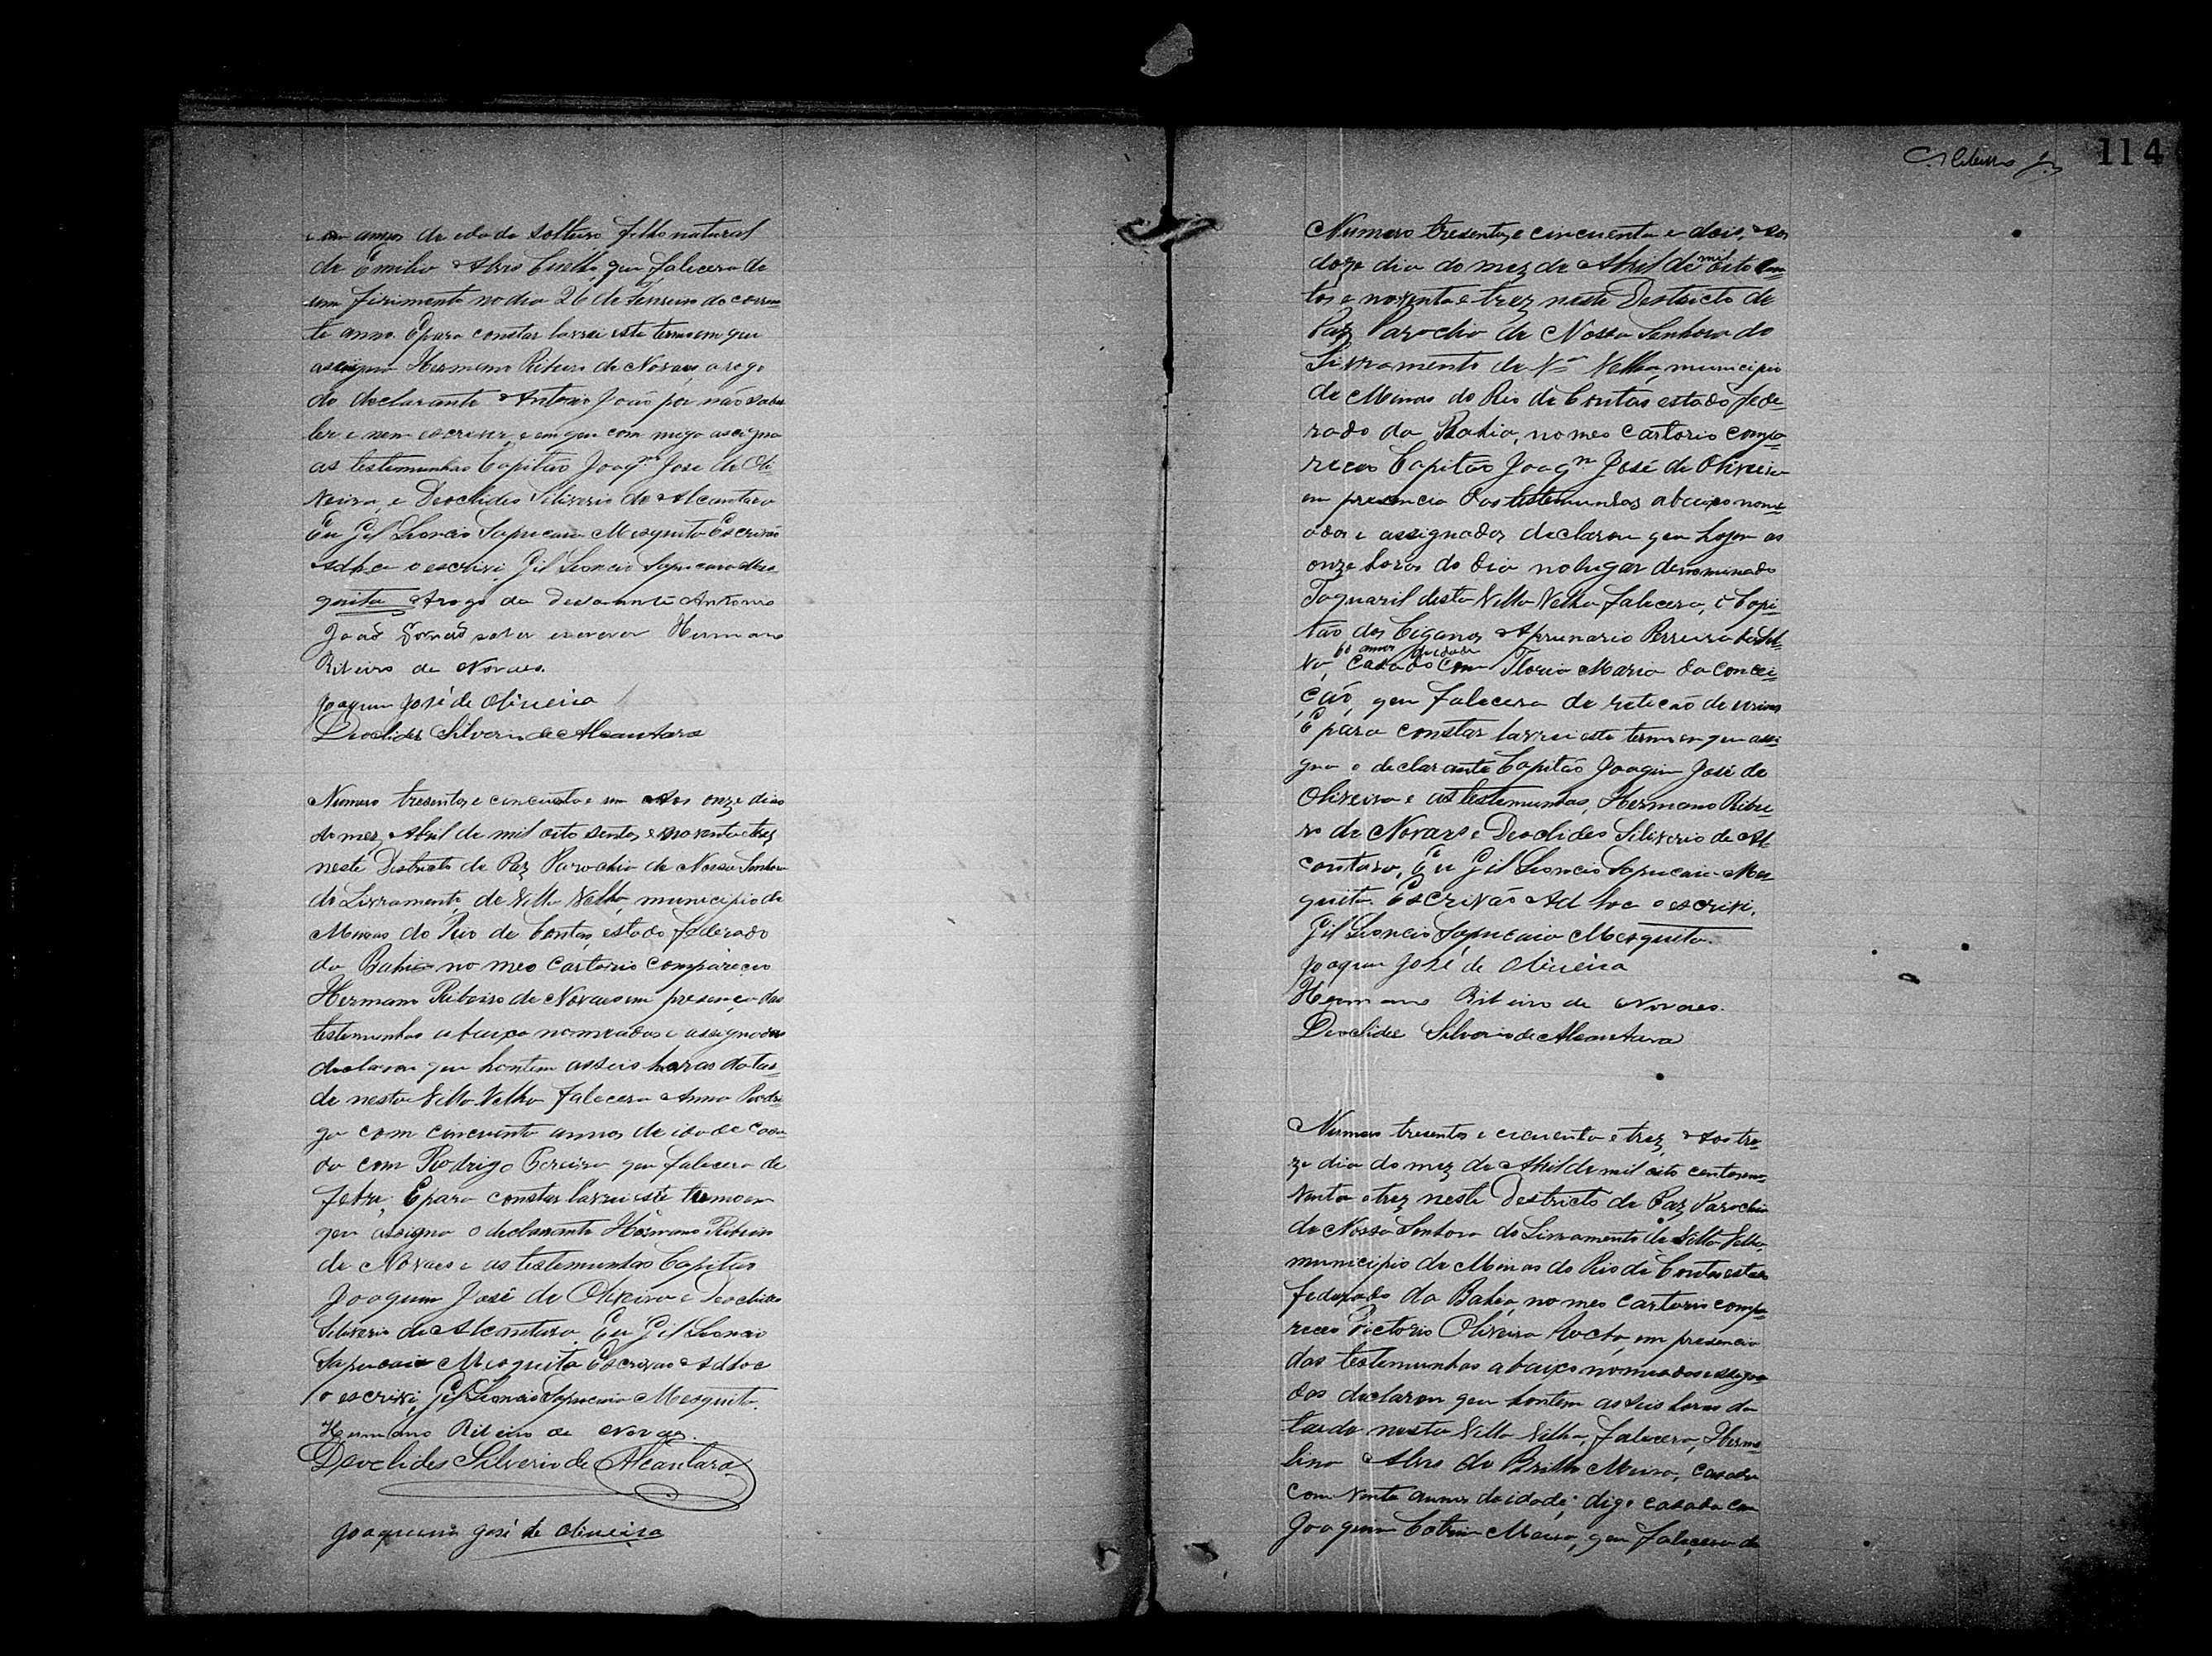 annos de edade solteiro filho natural
de Emilia Alves Coelho que falecera de
um firimento no dia 26 de Fevereiro do corren
te anno. E para constar lavrei este termo em que
assigna Hermano Ribeiro de Novaes, a rogo
do declarante Antonio João por não saber
ler e nem escrever, e em que com migo assigna
as testemunhas Capitão Joaqm José de Oli
veira, e Deoclides Silverio de Alcantara
Eu Gil Leoncio Sapucaia Mesquita Escrivão
Adhoc o escrivi, Gil Leoncio Sapucaia Mes
quita Arogo do Declarante Antonio
João saber escrever Hermano
Ribeiro de Novaes.
Joaquim José de Oliveira
Deoclides Silverio de Alcantara
Numero tresentos e cincuenta e um Aos onze dias
do mez Abril de mil oito sentos e noventa e trez
neste Destricto de Paz Parochia de Nossa Senhora
do Livramento, de Villa Velha, municipio de
Minas do Rio de Contas, estado federado
da Bahia no meo Cartorio compareceo
Hermano Ribeiro de Novaes em presença das
testemunhas abaixo nomeadas e assignadas
declarou que hontem as seis horas da tar
de nesta Villa Velha falecera Anna Rodri
ga com cincuenta annos de idade casa
da com Rodrigo Pereira que falecera de
febre, E para constar lavrei este termo em
que assigna o declarante Hermano Ribeiro
de Novaes e as testemunhas Capitão
Joaquim José de Oliveira e Deoclides
Silverio de Alcantara, Eu Gil Leoncio
Sapucaia Mesquita Escrivão Adhoc
o escrivi, Gil Leoncio Sapucaia Mesquita.
Hermano Ribeiro de Novaes.
Deoclides Silverio de Alcantara
Joaquim José de Oliveira
114
Numero tresentos e cincuenta e dois, Aos
doze dia do mez de Abril de mil oito cen
tos e noventa e trez neste Destricto de
Paz Parochia de Nossa Senhora do
Livramento de Va Velha, municipio
de Minas do Rio de Contas estado fede
rado da Bahia, no meo Cartorio compa
receo Capitão Joaqm José de Oliveira
em presencia das testemunhas abaixo nome
adas e assignadas declarou que hoje as
onze horas do dia no lugar denominado
Taquaril desta Villa Velha falecera, o Capi
tão dos Ciganos Aprunario Perreira da Sil
va, 60 annos de idade casado com Floria Maria da Concei
ção, que falecera de reteção de urinas
E para constar lavrei este termo em que assi
gna o declarante Capitão Joaquim José de
Oliveira e as testemunhas, Hermano Ribei
ro de Novaes e Deoclides Silverio de Al
cantara, Eu Gil Leoncio Sapucaia Mes
quita. Escrivão Ad hoc o escrivi.
Gil Leoncio Sapucaia Mesquita.
Joaquim José de Oliveira
Hermano Ribeiro de Novaes.
Deoclides Silverio de Alcantara
Numero tresentos e cicuenta e trez, Aos tre
ze dia do mez de Abril de mil oito centos no
venta e trez neste Destricto de Paz Parochia
de Nossa Senhora do Livramento de Villa Velha,
municipio de Minas do Rio de Contas estado
federado da Bahia, no meo cartorio compa
receo Victorio Oliveira em presencia
das testemunhas abaixo nomeadas e assigna
das declarou que hontem as seis horas da
tarde nesta Villa Velha, falecera, Herme
lina Alves de Britto Meira, casada
com vinte annos de idade, digo casada com
Joaquim Cotrim Meira, que falecera de